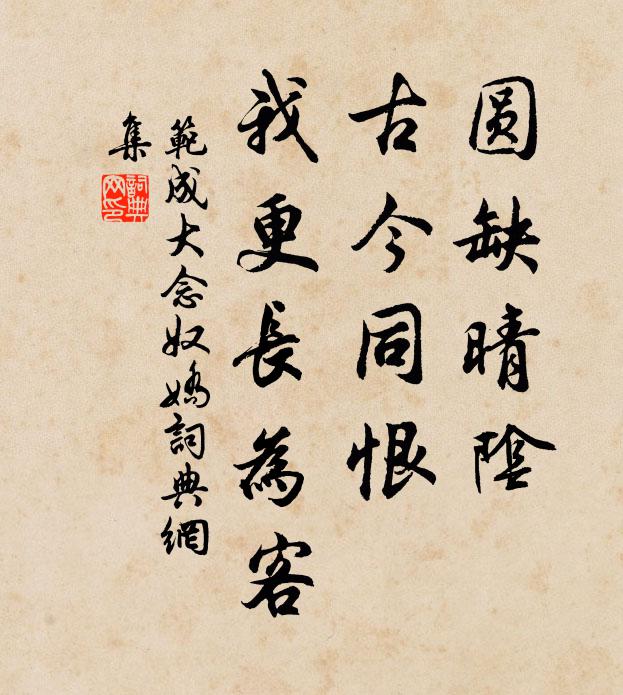 圆缺晴陰
古今同恨
我更長為客
範成大念奴嬌詞典網
集
詞典
网印